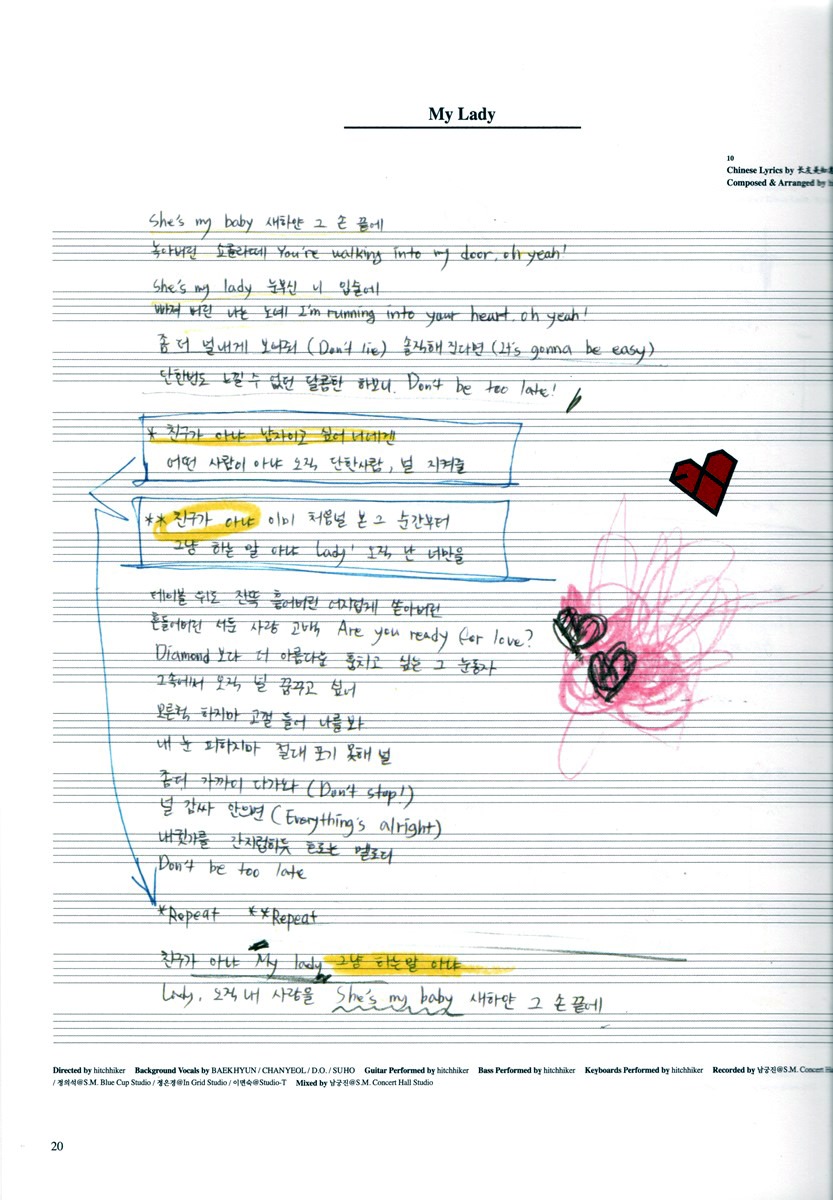 My Lady
10
Chinese Lyrics by
Composed & Arranged by
She's my baby 새하얀 그 손 끝에
녹아버린 쇼콜라떼 You're walking into my door, oh yeah!
She's my lady 눈부신 니 입술에
빠져 버린 나는 노예 I'm running into your heart, oh yeah!
좀 더 널 내게 보여줘 (Don't lie) 솔직해 진다면 (It's gonna be easy)
단한번도 느낄 수 없던 달콤한 하모니. Don't be too late!
* 친구가 아냐 남자이고 싶어 너에겐
어떤 사람이 아냐 오직 단한사람, 널 지켜줄
** 친구가 아냐 이미 처음널 본 그 순간부터
그냥 하는 말 아냐 Lady' 오직 난 너만을
테이블 위로 잔뜩 흩어버린 어지럽게 쏟아버린
흔들어버린 서툰 사랑 고백 Are you ready for love?
Diamond 보다 더 아름다운 훔치고 싶은 그 눈동자
그속에서 오직 널 꿈꾸고 싶어
모른척 하지마 고갤 들어 나를 봐
내 눈 피하지마 절대 포기 못해 널
좀더 가까이 다가와 (Don't stop!)
널 감싸 안으면 (Everything's alright)
내귓가를 간지럽히듯 흐르는 멜로디
Don't be too late
*Repeat **Repeat
친구가 아냐 My lady 그냥 하는말 아냐
Lady, 오직 내 사랑을 She's my baby 새하얀 그 손 끝에
Directed by hitchhiker Background Vocals by BAEKHYUN / CHANYEOL / D.O. / SUHO Guitar Performed by hitchhiker Bass Performed by hitchhiker Keyboards Performed by hitchhiker Recorded by 남궁진@S.M. Concert
/ 정의석@S.M. Blue Cup Studio / 정은경@In Grid Studio / 이면숙@Studio-T Mixed by 남궁진@S.M. Concert Hall Studio
20